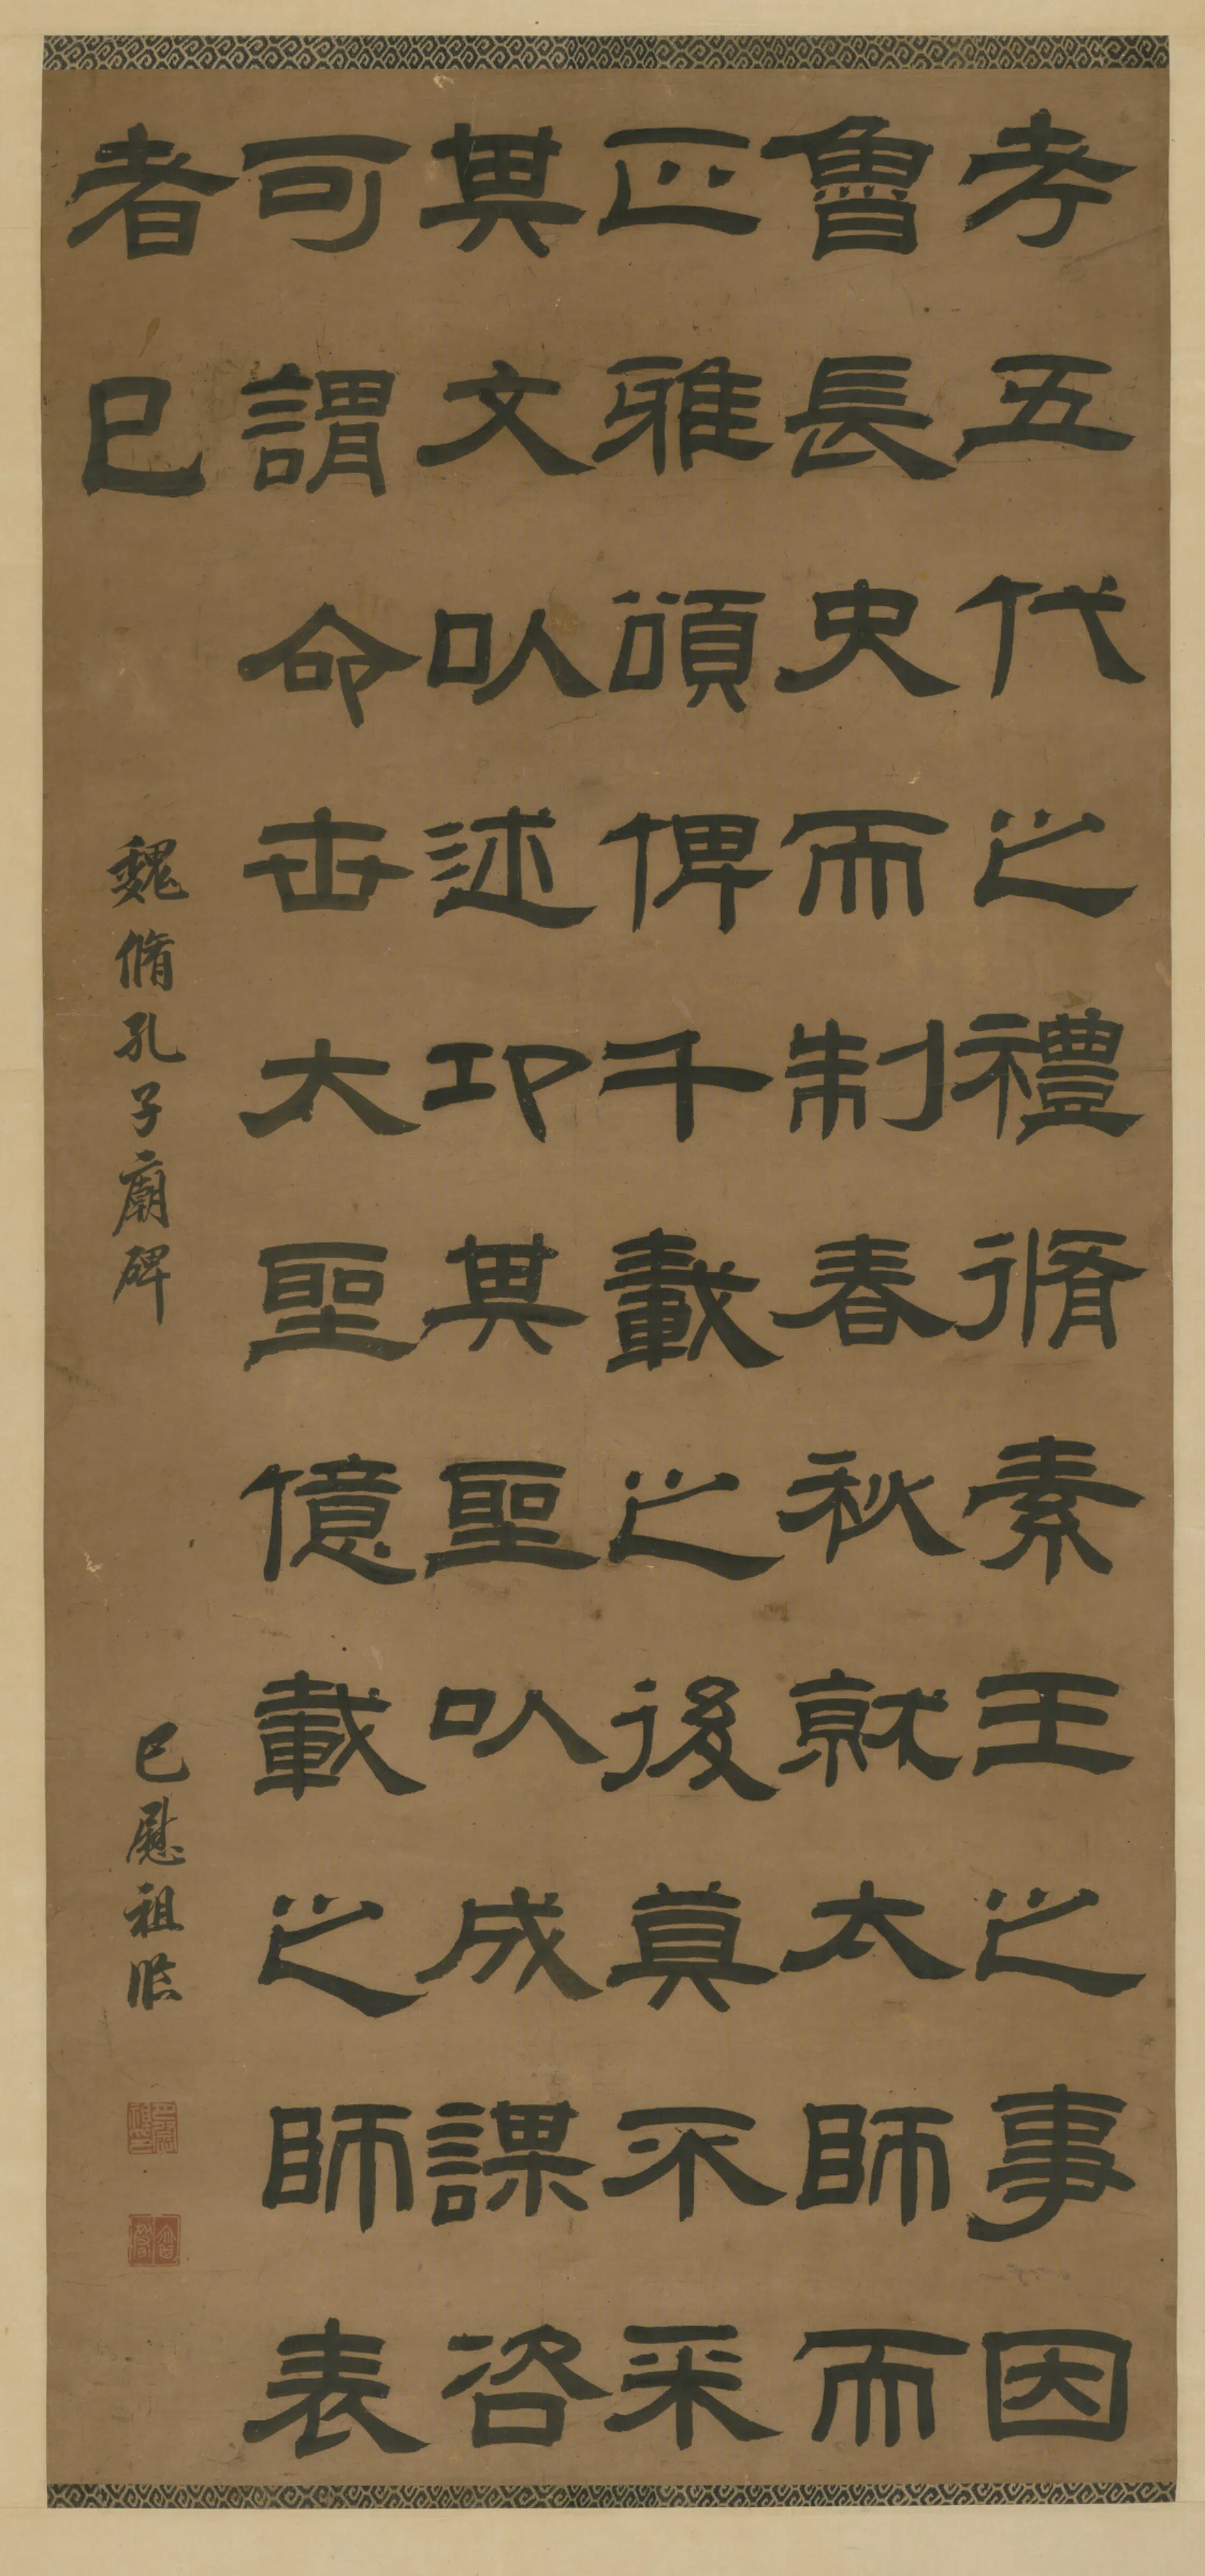 考五代之禮脩素王之事因
魯長史而制春秋就大師而
正雅頌俾千載之後莫不采
其文以述卬其聖以成謀咨
可謂命世大聖億載之師表
者已
魏脩孔子廟碑
巴慰祖臨